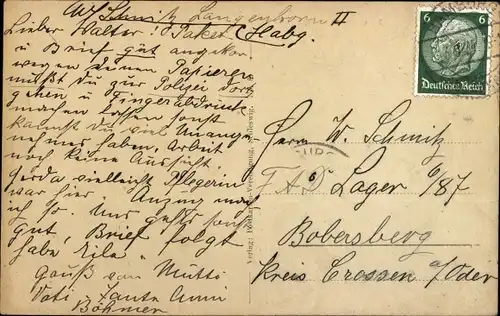 Schmitz Langenhorn II
Lieber Walter! Paket (Habg.
u Brief gut angekom.
wegen deinen Papieren
mußt Du zur Polizei dort
gehen u Fingerabdrück
machen lassen sonst
kannst Du viel Unange
nehmes haben, Arbeit
noch keine Aussicht.
Gerda vielleicht Pflegerin
war hier Anzug mag
ich so. Uns gehts sonst
gut, Brief folgt
habe Eile
Gruß von Mutti
Vati Tante Anni
Böhmer
6 6
Deutsches Reich
Herrn W. Schmitz
F.A.D. Lager 6/87
Bobersberg
Kreis Crossen a/Oder